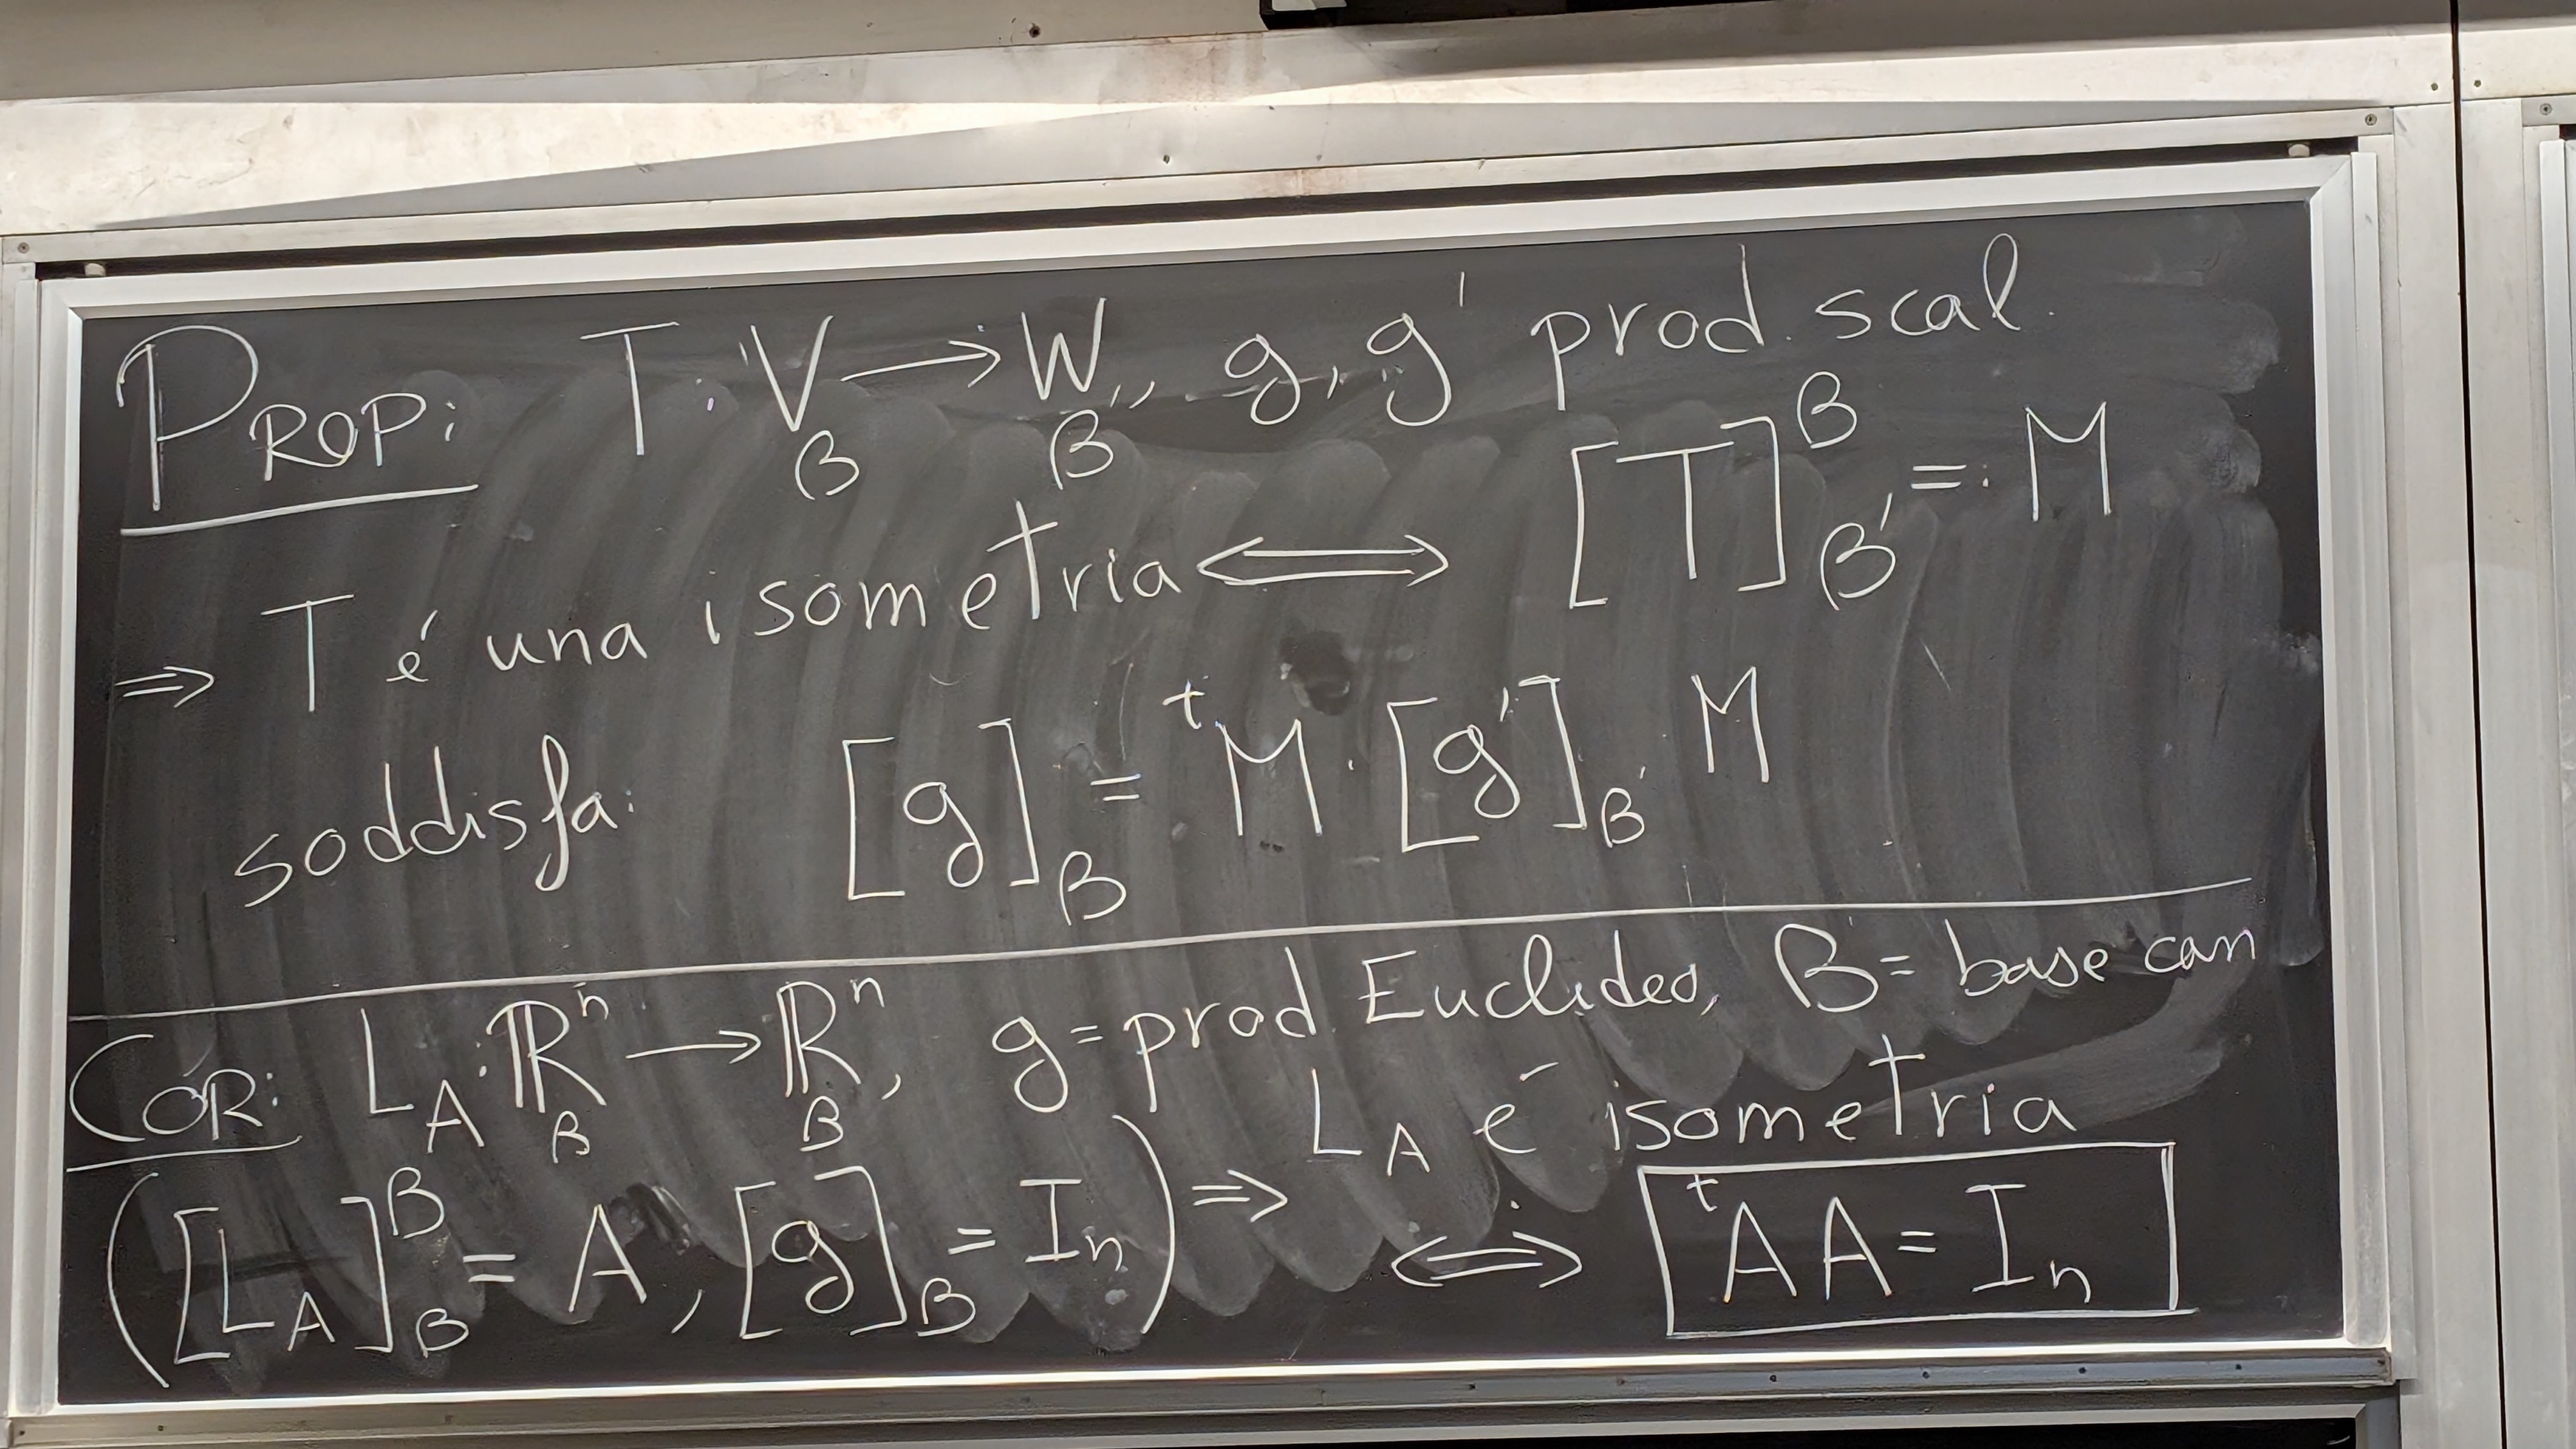 PROP: T: V → W, g, g' prod. scal.
B B' [T]^B_B' =: M
⇒ T é una isometria ⟺
soddisfa: [g]_B = ᵗM · [g']_B' · M
COR: L_A: ℝⁿ → ℝⁿ, g = prod Euclideo, B = base can
B B L_A é isometria
([L_A]^B_B = A, [g]_B = I_n) ⇒ ⟺ ᵗAA = I_n